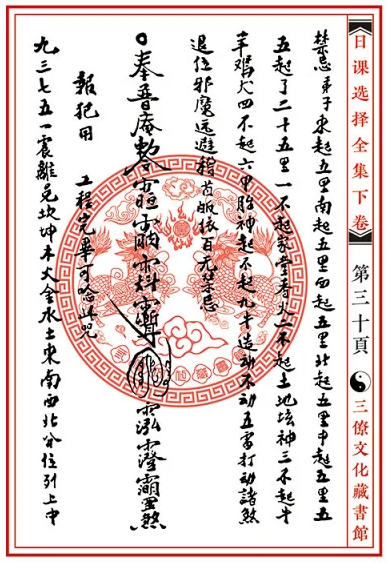 日课选择全集下卷
第三十頁
三僚文化藏書館
禁忌弟子東起五里南起五里西起五里北起五里中起五里五
五起了二十五里一不起家堂香火二不起土地坛神三不起牛
羊鸡犬四不起六甲胎神起不起九牛造动不动五雷打动諸煞
退位邪魔远避稽首皈依百无禁忌
奉普庵勅
煞
報犯用 工程完畢可唸此咒
九三七五一震離兑坎坤木火金水土東南西北分位列上中